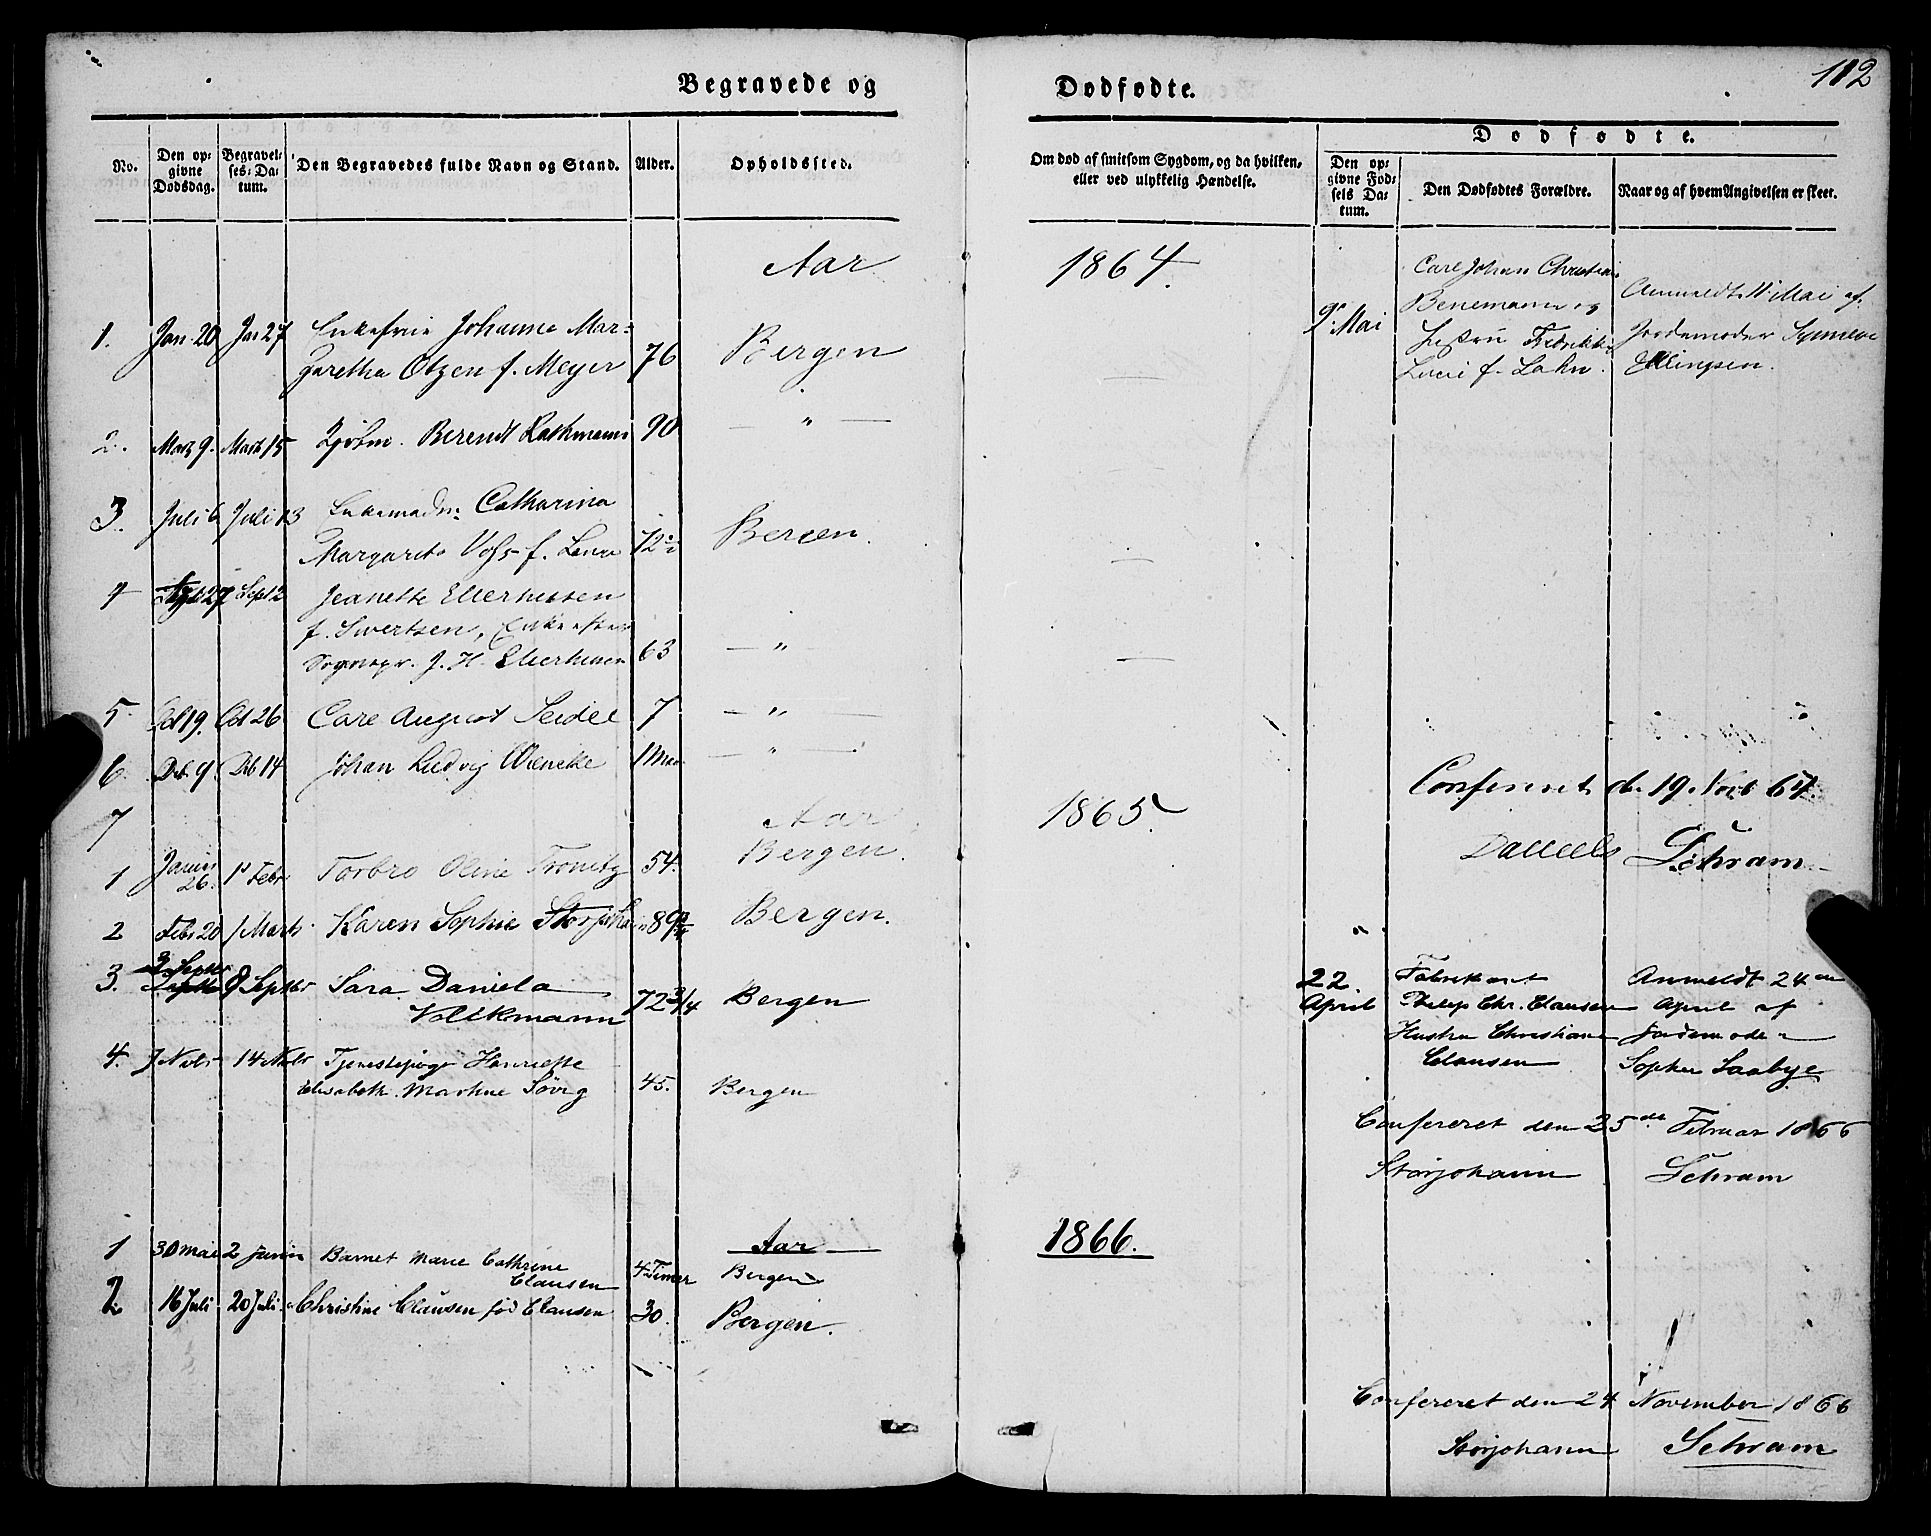 112
Begravede og Dødfødte.
No.
Den opgivne Dødsdag.
Begravelses-Datum.
Den Begravedes fulde Navn og Stand.
Alder.
Opholdssted.
Om død af smitsom Sygdom, og da hvilken, eller ved ulykkelig Hændelse.
Dødfødte.
Den opgivne Fødsels Datum.
Den Dødfødtes Forældre.
Naar og af hvem Angivelsen er skeet.
Aar 1864.
1. Jan. 20 Jan 27 Enkefrue Johanna Mar=
garetha Olzen f. Meyer 76 Bergen
2. Marts 9. Marts 15 Berendt Rathmann 90 — " —
3. Juli 6 Juli 13 Enkemadm: Catharina
Margareta Voss f. 72 Bergen.
4 27 Sept 2 Jeanette Ellerhusen
f. Sivertsen, Enke efter
Sognepr. J. H. Ellerhusen 63 — " —
5. Oct 19. Oct 26 Carl August Seidel 7 — " —
6. Deb. 9. Deb 14 Johan Ludvig Wieneke 1 — " —
7
9. Mai
Carl Johan Christian
Benemann og
Fredrikke
f. Lahn.
Anmeldt 11 Mai af
Jordemoder Synneve
Ellingsen.
Confereret d. 19 Novb 64.
Daniels Schram
Aar 1865.
1 Januar 26. 1 Febr Torbro Oline Tronitz 54. Bergen.
2 Febr 20 1 Marts Karen Sophie 89 Bergen.
3. 2 Septbr 8 Septbr Sara Daniela
Volckmann 72 3/4 Bergen
4. 7 Novbr 14 Novbr Tjenestepige Henriette
Elisabeth Martine 45. Bergen
22 April
Fabrikant
Philip Chr. Clausen
Hustru Christiane
Clausen
Anmeldt 24
April af
Jordemoder
Sophie Saabye
Confereret den 25de Februar 1866
Storjohann Schram
Aar 1866.
1 30 Mai 2 Juni Barnet Marie Cathrine
Clausen 4 Timer Bergen
2 16 Juli 20 Juli Christine Clausen fød Clausen 30. Bergen.
Confereret den 24 November 1866
Storjohann Schram